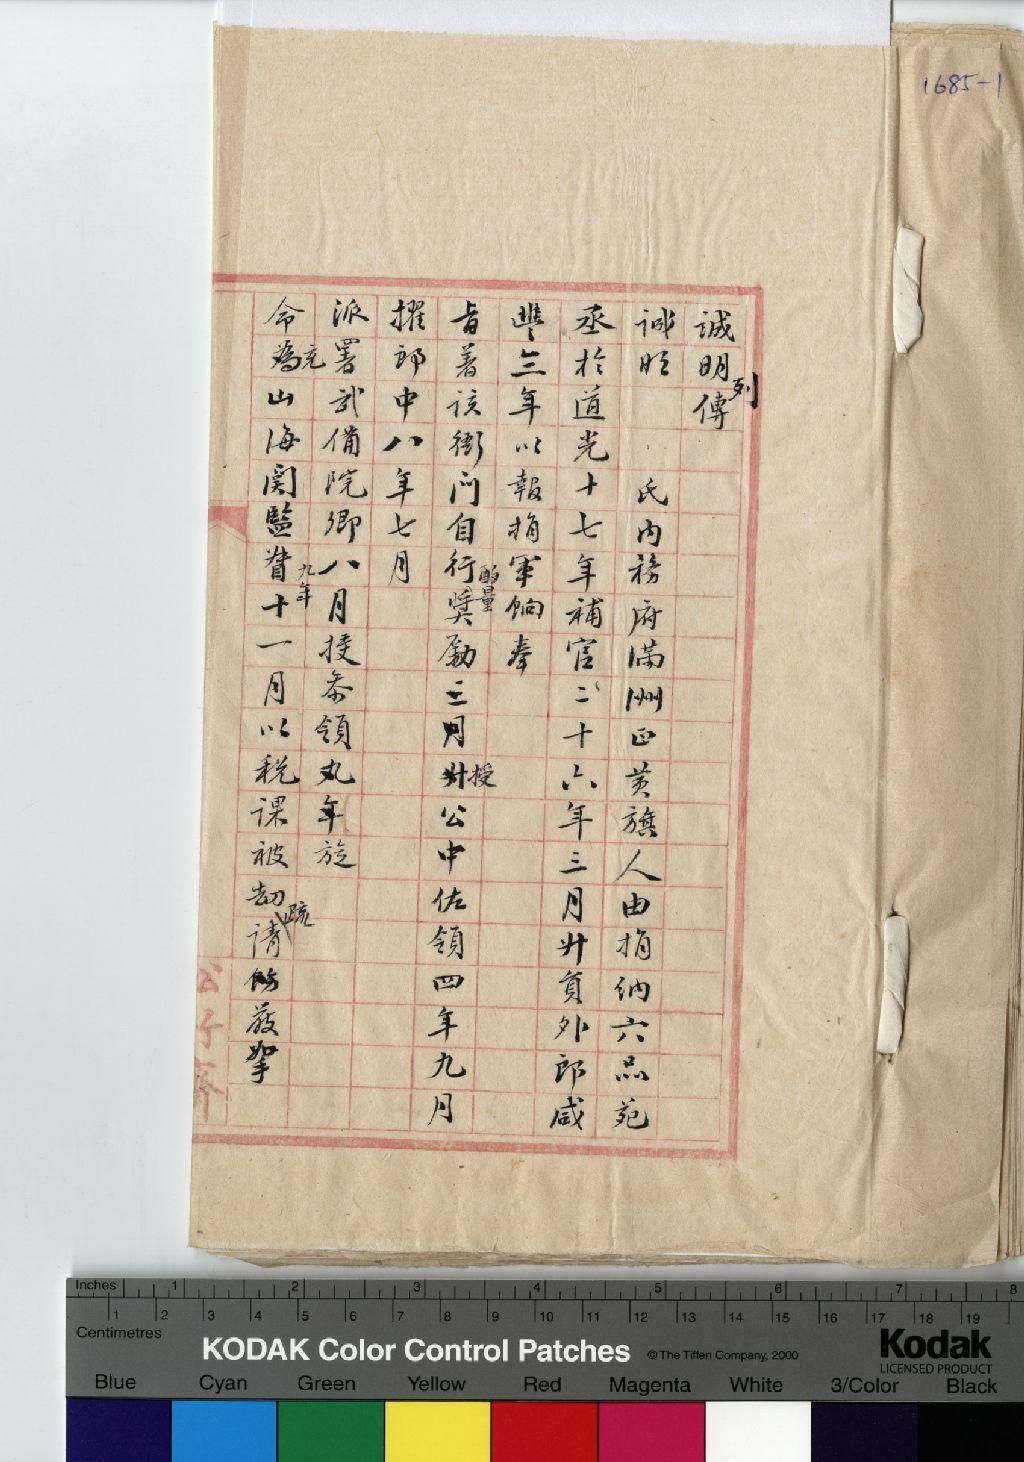 1685-1
誠明列傳
誠明 氏內務府滿洲正黃旗人由捐納六品苑
丞於道光十七年補官二十六年三月升員外郎咸
豐三年以報捐軍餉奉
旨著該衙門自行酌量獎勵三月升授公中佐領四年九月
擢郎中八年七月
派署武備院卿八月授參領九年旋
命充為山海關監督九年十一月以稅課被劫疏請飭嚴拏
公 行 齋
Inches 1 2 3 4 5 6 7 8
1 2 3 4 5 6 7 8 9 10 11 12 13 14 15 16 17 18 19
Centimetres
KODAK Color Control Patches ©The Tiffen Company, 2000 Kodak
LICENSED PRODUCT
Blue Cyan Green Yellow Red Magenta White 3/Color Black